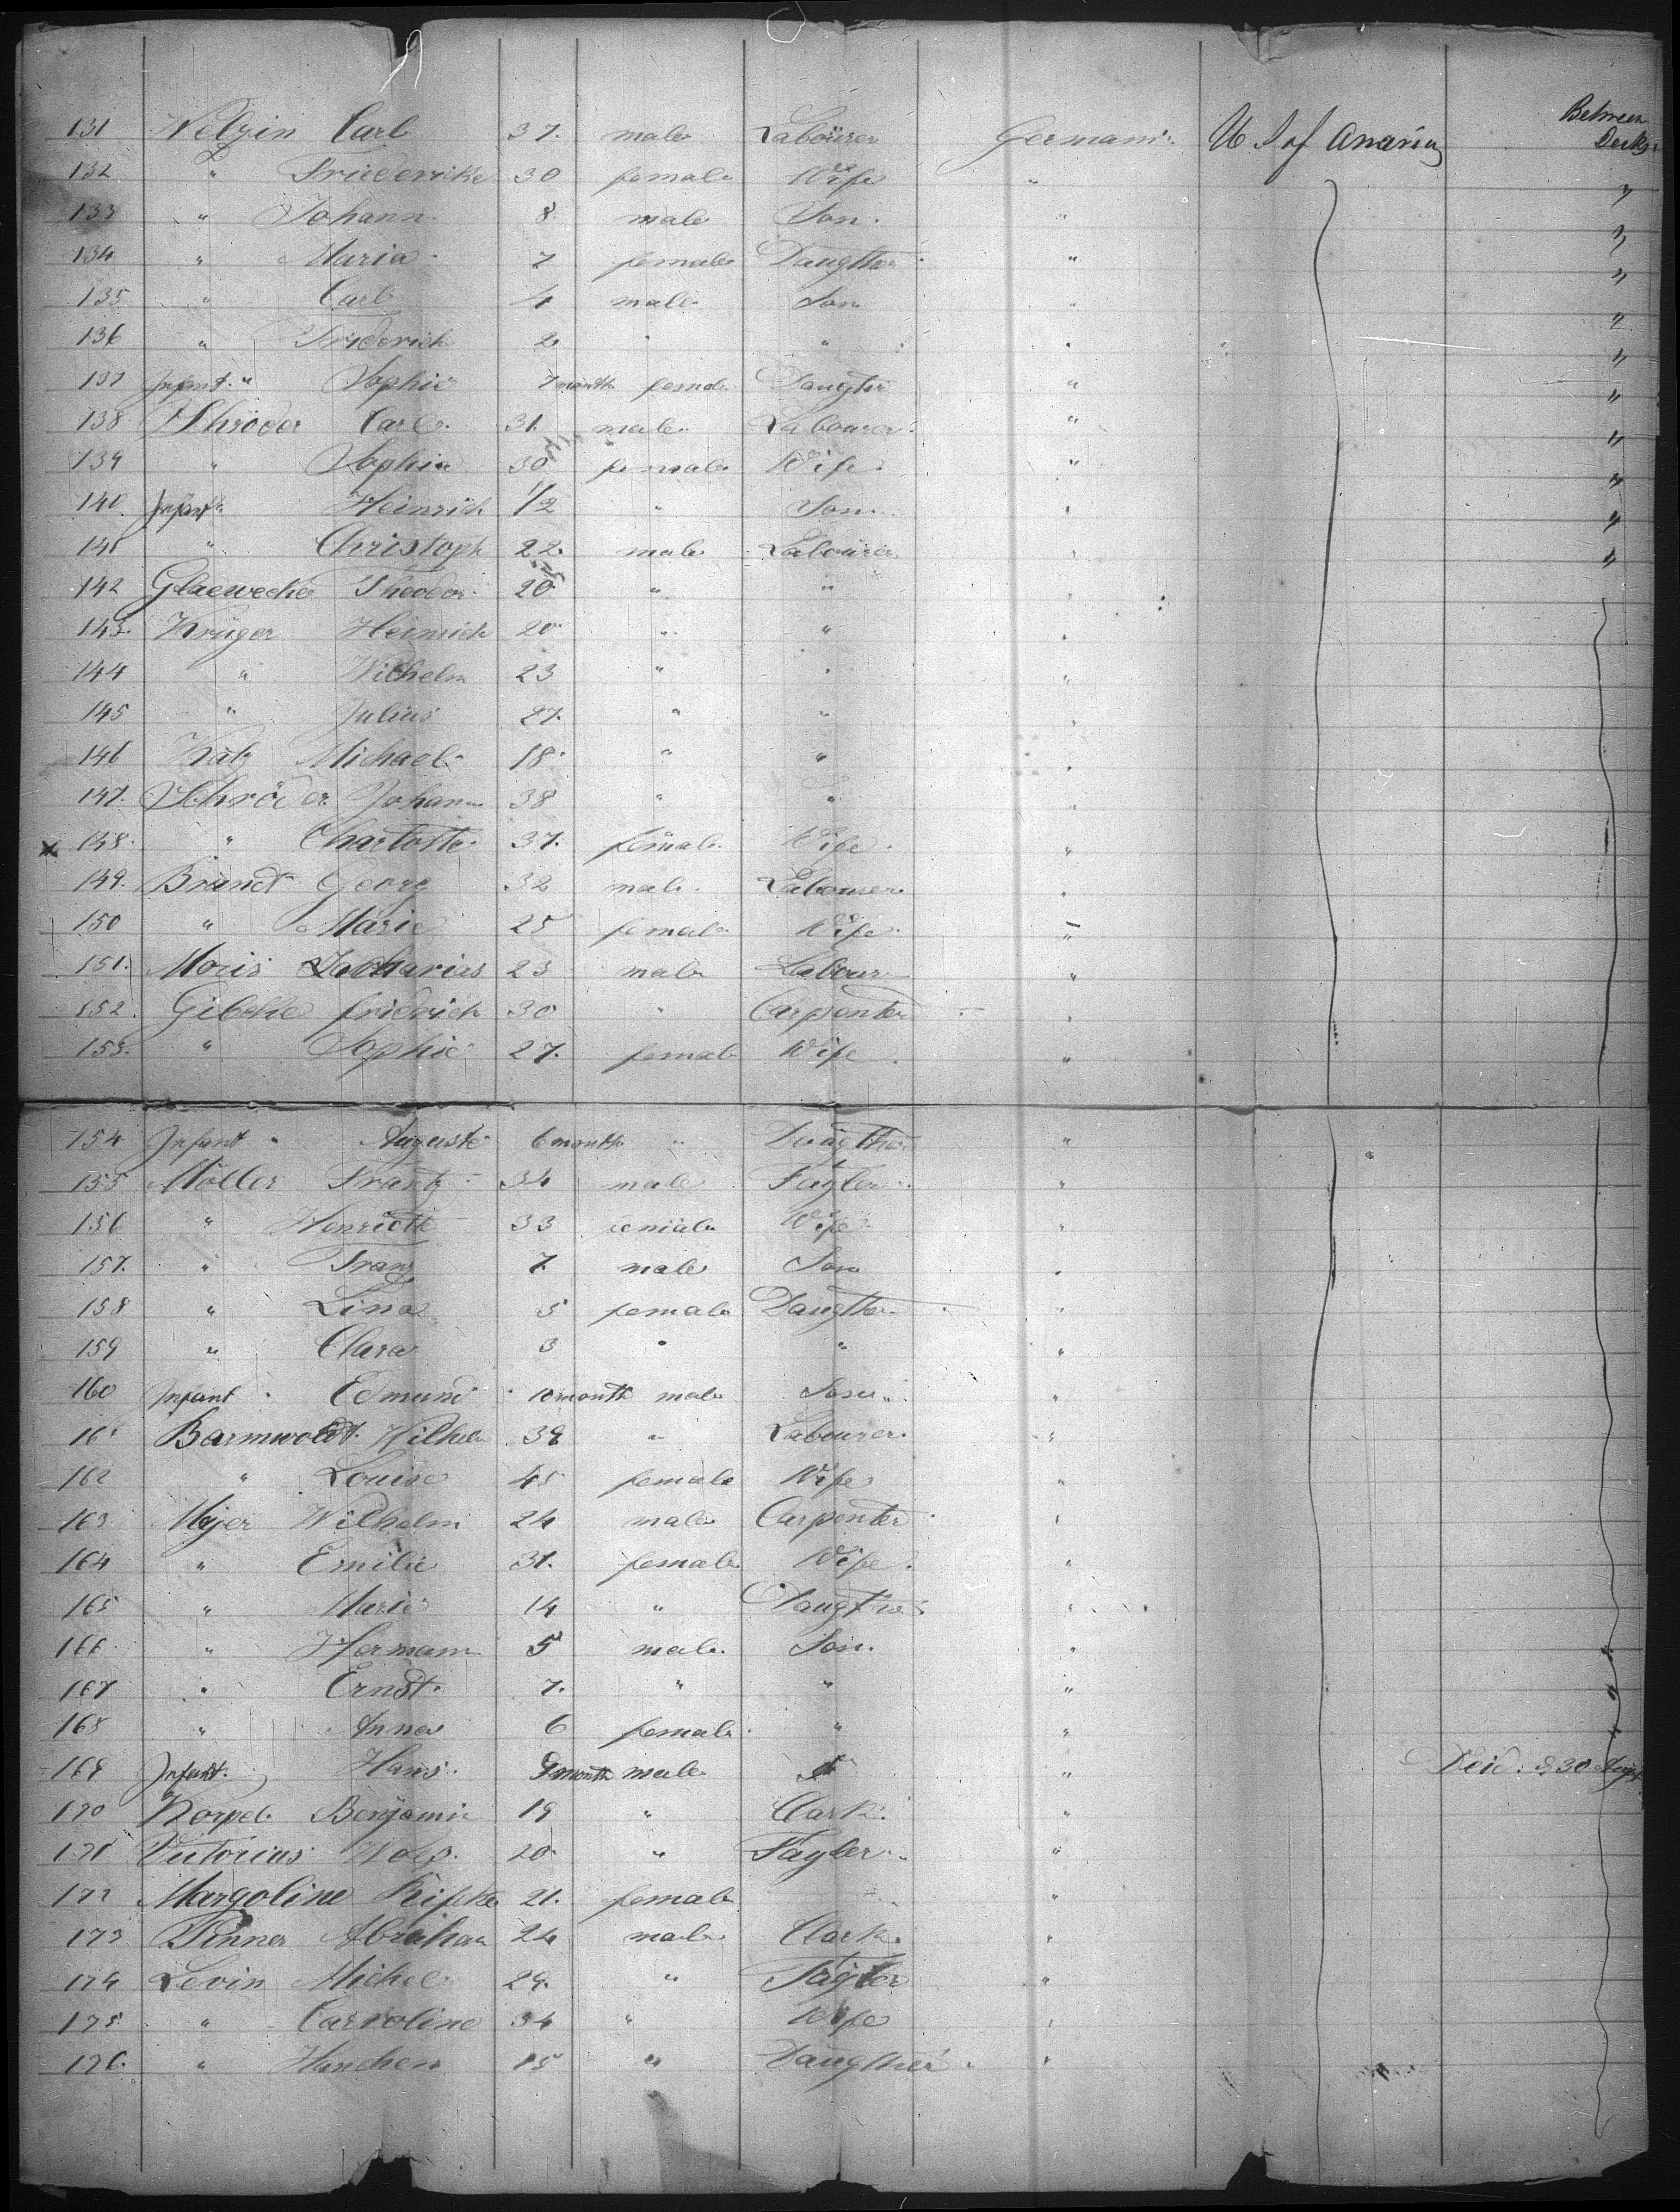 Between
131 Welzin Carl 37. male Labourer Germani. U S of America Decks.
132 " Friederike 30 female Wife " "
133 " Johann 8 male Son. " "
134 " Maria 7 female Daugther " "
135 " Carl 4 male Son " "
136 " Friederich 2 " " " "
137 Infant " Sophie 7 month female Daugter " "
138 Schröder Carl 31. male Labourer " "
139 " Sophia 30 female Wife " "
140. Infant " Heinrich 1/2 " Son " "
141 " Christoph 22. male Labourer " "
142 Glaewecke Theodor 20 " " "
143. Krüger Heinrich 20 " " "
144 " Wilhelm 23 " " "
145 " Julius 27. " " "
146 Katz Michael 18. " " "
147. Schröder Johann 38 " " "
x 148. " Charlotte 37. female Wife "
149. Brandt Georg 32 male Labourer "
150 " Marie 25 female Wife "
151. Moris Zacharias 23 male Labour "
152. Gibcke fridrich 30 " Carpenter "
153. " Sophie 27. female Wife "
154 Infant " Auguste 6 month " Daugther "
155 Möller Frantz 34 male Taylor "
156 " Henriette 33 female Wife "
157. " Franz 7. male Son "
158 " Lina 5 female Daugther "
159 " Clara 3 " " "
160 Infant " Edmund 10 month male Son "
161 Barmwoldt Wilhelm 38 " Labourer "
162 " Louise 45 female Wife "
163 Mejer Wilhelm 24 male Carpenter "
164 " Emilie 31. female Wife "
165 " Marie 14 " Daugther "
166 " Hermann 5 male Son. "
167 " Ernst. 7. " " "
168 " Anna 6 female " "
169 Infant. Hans. 9 month male " Deid. d. 30 Augst
170 Korpel Benjamin 19 " Clark "
171 Victorius Wolf. 20 " Tayler "
172 Margoline Rifka 21. female "
173 Pinner Abraham 24 male Clark. "
174 Levin Michel 29. " Taylor "
175. " Carroline 34 " Wife "
176. " Hanchen 15 " Daugther "